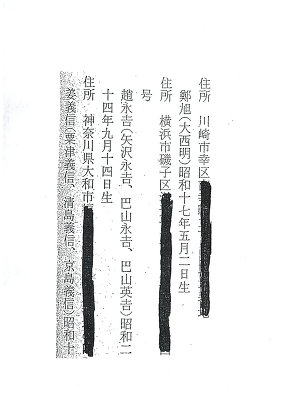 住所　川崎市幸区
鄭旭(大西明)昭和十七年五月二日生
住所　横浜市磯子区
号
趙永吉(矢沢永吉、巴山永吉、巴山英吉)昭和二
十四年九月十四日生
住所　神奈川県大和市
姜義信(粟津義信、清島義信、京島義信)昭和十